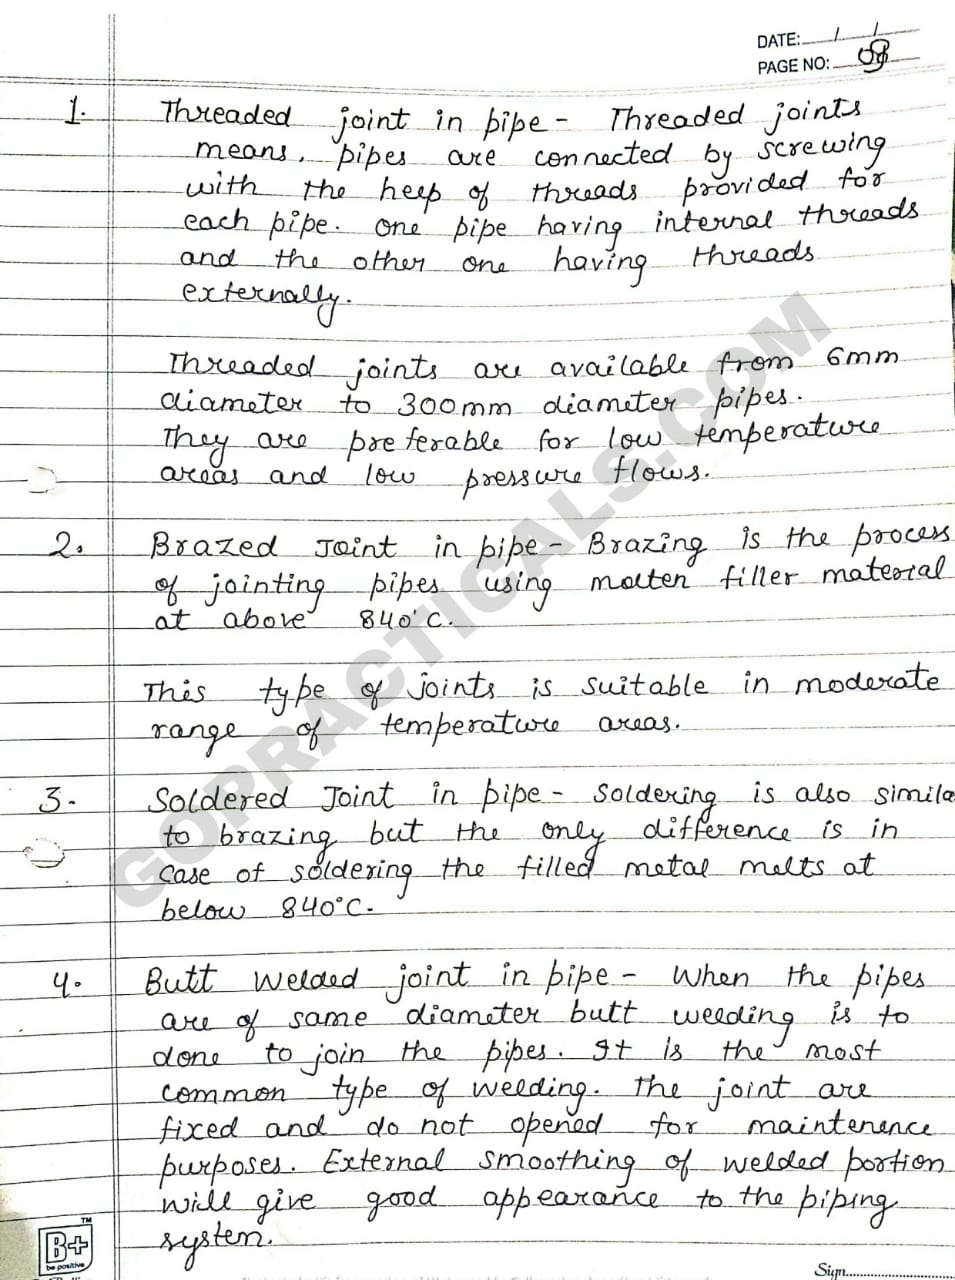 DATE: / /
PAGE NO: 08
1. Threaded joint in pipe - Threaded joints
means, pipes are connected by screwing
with the heep of threads provided for
each pipe. one pipe having internal threads
and the other one having threads
externally.
Threaded joints are available from 6mm
diameter to 300mm diameter pipes.
They are preferable for low temperature
areas and low pressure flows.
2. Brazed Joint in pipe - Brazing is the process
of jointing pipes using molten filler material
at above 840°C.
This type of joints is suitable in moderate
range of temperature areas.
3. Soldered Joint in pipe - Soldering is also simila
to brazing but the only difference is in
case of soldering the filled metal melts at
below 840°C.
4. Butt welded joint in pipe - When the pipes
are of same diameter butt welding is to
done to join the pipes. It is the most
common type of welding. The joint are
fixed and do not opened for maintenence
purposes. External smoothing of welded portion
will give good appearance to the piping
system.
GOPRACTICALS.COM
TM
B+
be positive
Sign